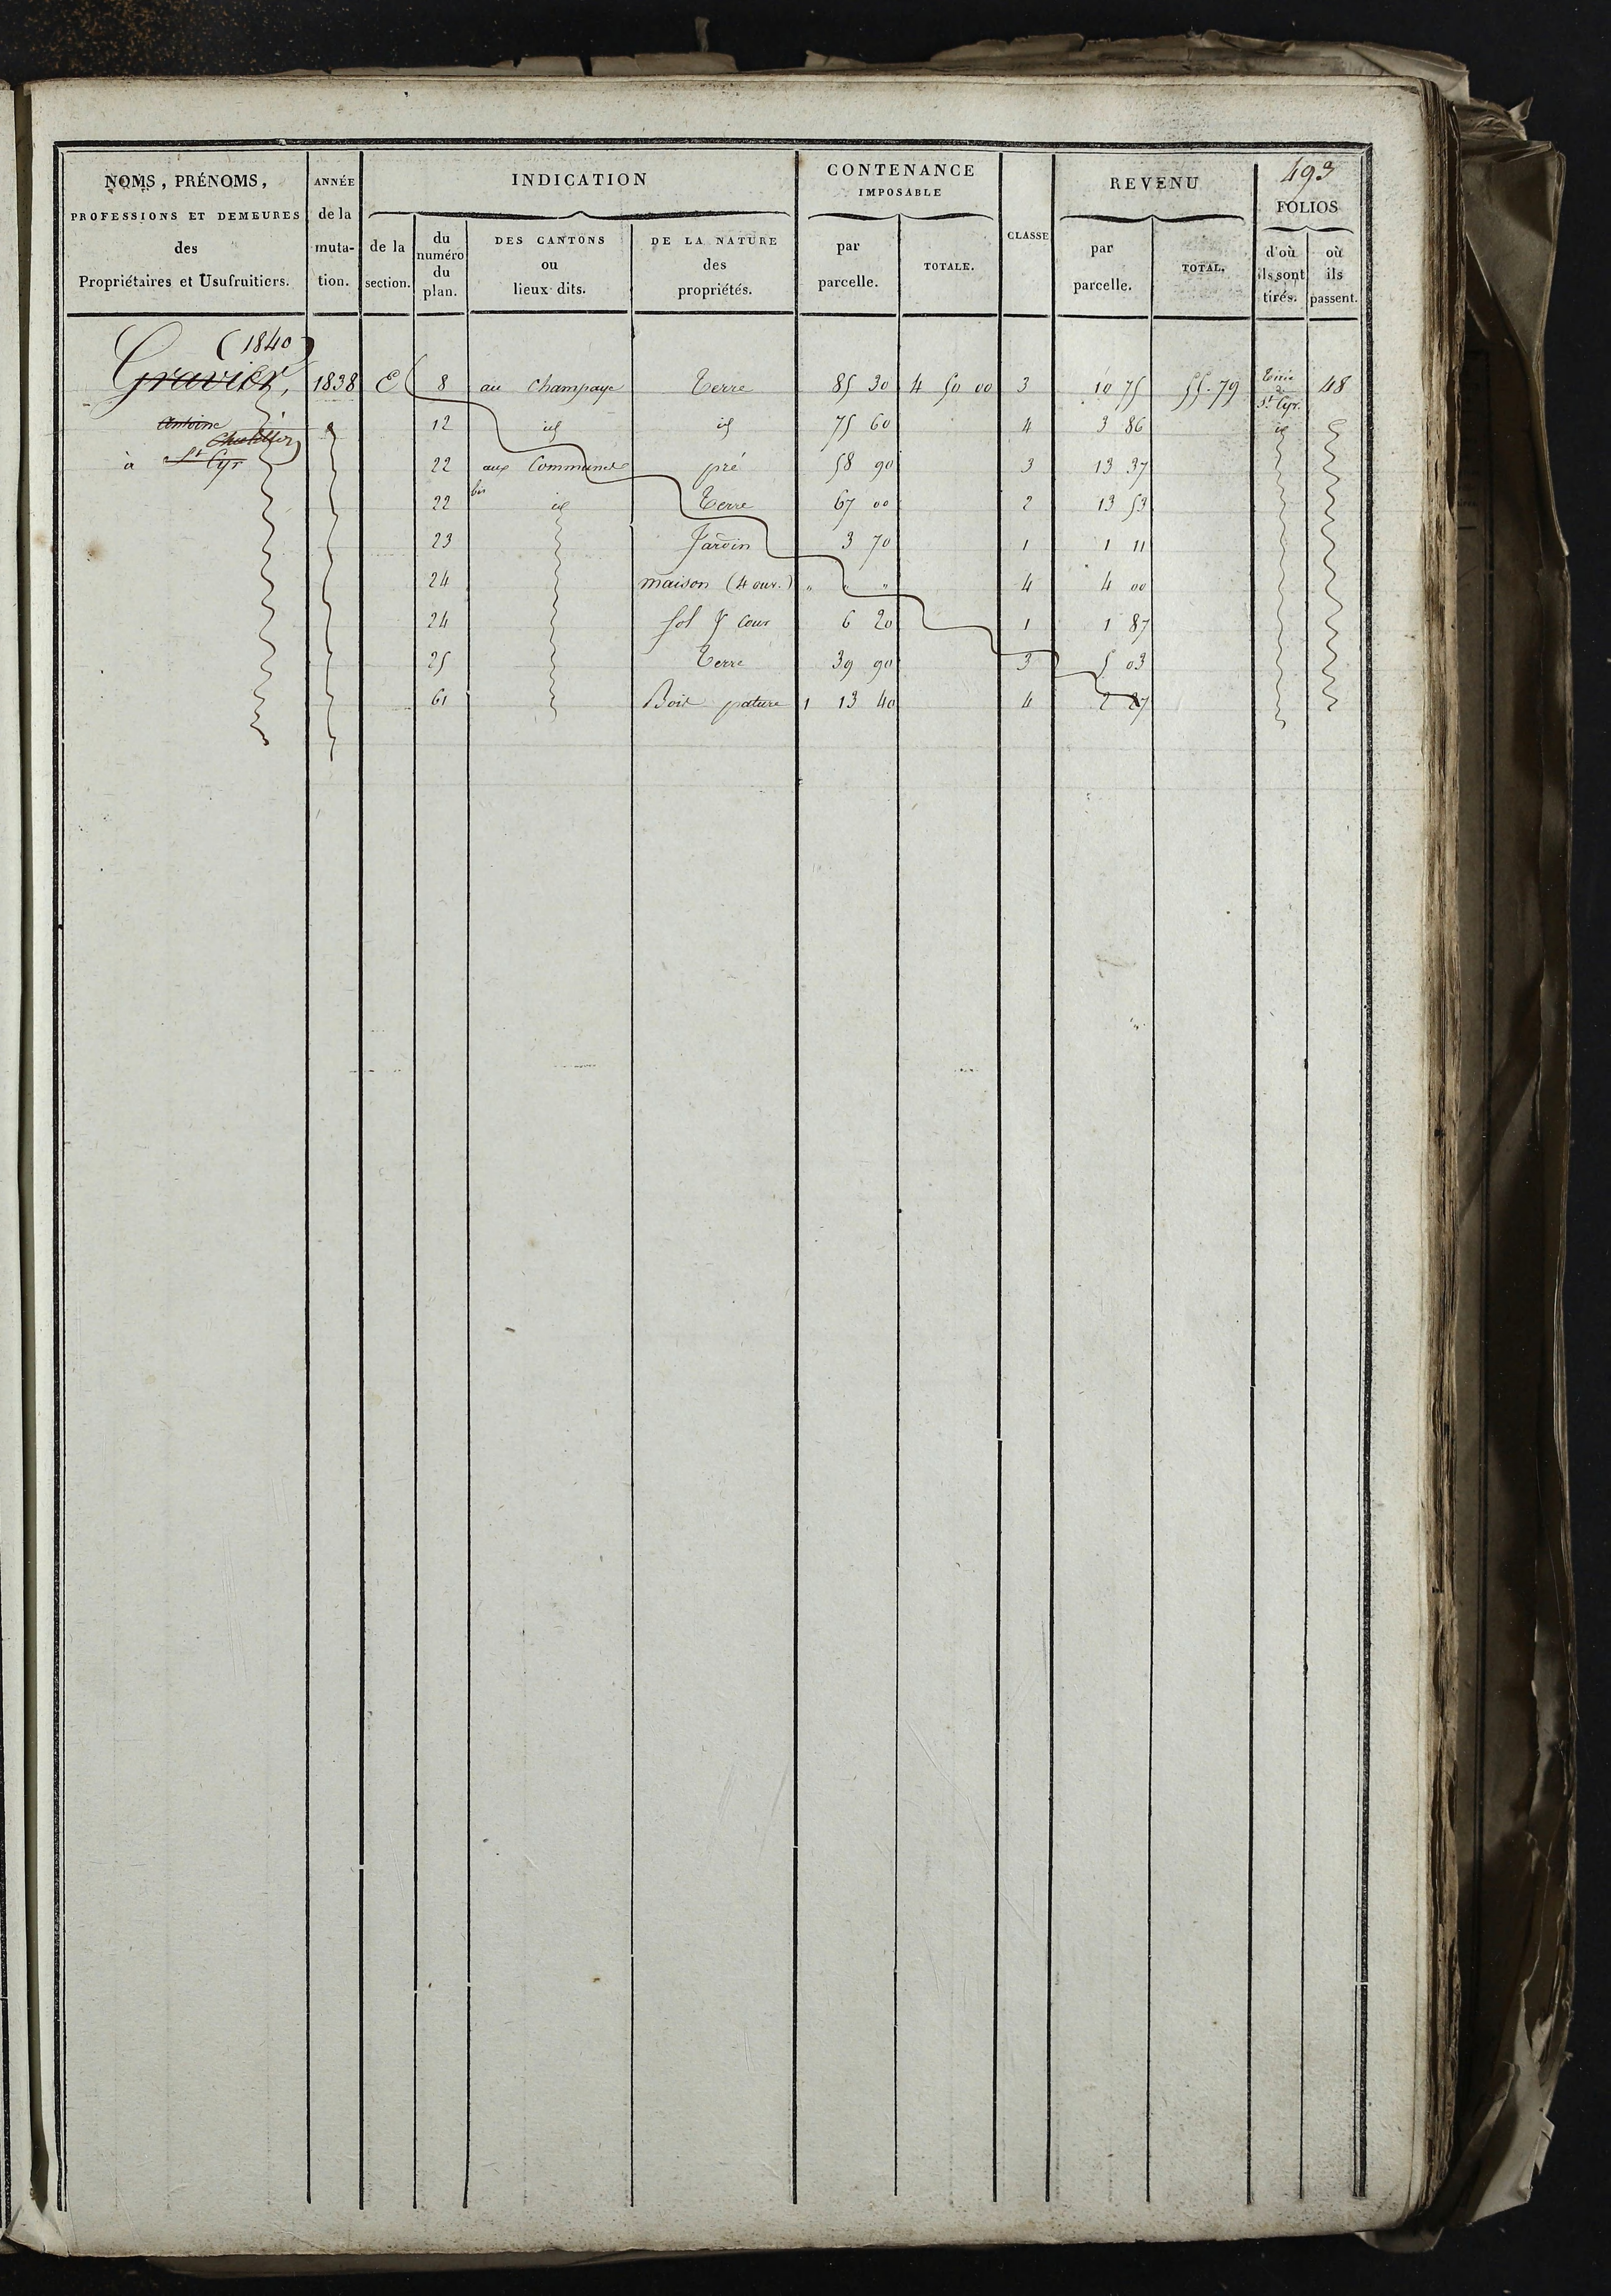 493
NOMS, PRÉNOMS, PROFESSIONS ET DEMEURES des Propriétaires et Usufruitiers.
ANNÉE de la muta-tion.
INDICATION
de la section.
du numéro du plan.
DES CANTONS ou lieux dits.
DE LA NATURE des propriétés.
CONTENANCE IMPOSABLE
par parcelle.
TOTALE.
CLASSE
REVENU
par parcelle.
TOTAL.
FOLIOS
d'où ils sont tirés.
où ils passent.
(1840)
Gravier, 1838 E 8 au Champaye Terre 85 30 4 50 00 3 10 75 55.79 St Cyr. 48
Antoine 12 id id 75 60 4 3 86 id
à St Cyr 22 aux Communes pré 58 90 3 13 37
22 bis id Terre 67 00 2 13 53
23 Jardin 3 70 1 1 11
24 maison (4 ouv.) " " " 4 4 00
24 Sol & Cour 6 20 1 1 87
25 Terre 39 90 3 5 03
61 Bois pature 1 13 40 4 2 27